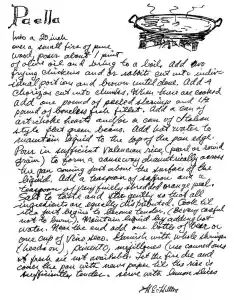 Paella
Into a 20 inch
over a small fire of pine
wood pour about 1 pint
of olive oil and bring to a boil. Add two
frying chickens and or rabbit cut into indiv-
idual portion and brown until done. Add 4
chorizos cut into chunks. When these are cooked
add one pound of peeled shrimp and ½
pound of boneless fish filleted. Add a can of
artichoke hearts and/or a can of Italian
style giant green beans. Add hot water to
maintain liquid to the top of the pan edge.
Pour in sufficient Valencia rice (pearl or round
grain) to form a causeway diametrically across
the pan coming just above the surface of the
liquid. Add a teaspoon of saffron and
teaspoon of very finely shredded orange peel.
Salt to taste and stir gently so that all
ingredients are equally distributed. Cook til
rice just begins to become tender, being careful
not to burn. Maintain liquid by adding hot
water. Near the end add one bottle of beer or
one cup of vino seco. Garnish with whole shrimps
(heads on), pimiento, mejillones (use canned ones
if fresh are not available. Let the fire die and
cover the pan with news paper til the rice is
sufficiently tender. Serve with lemon slices